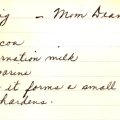 — Mom Dean
coa
rnation milk
arine
it forms a small
hardens.